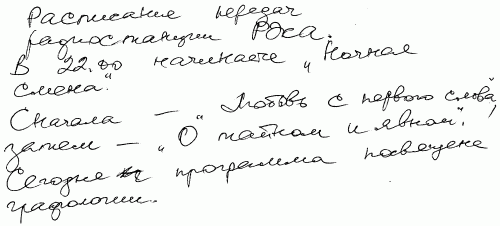 Расписание передач
радиостанции Рокса.
В 22.00 начинаете „Ночная
смена."
Сначала – „Любовь с первого слова",
затем – „О тайном и явном".
Сегодня программа посвещена
графологии.